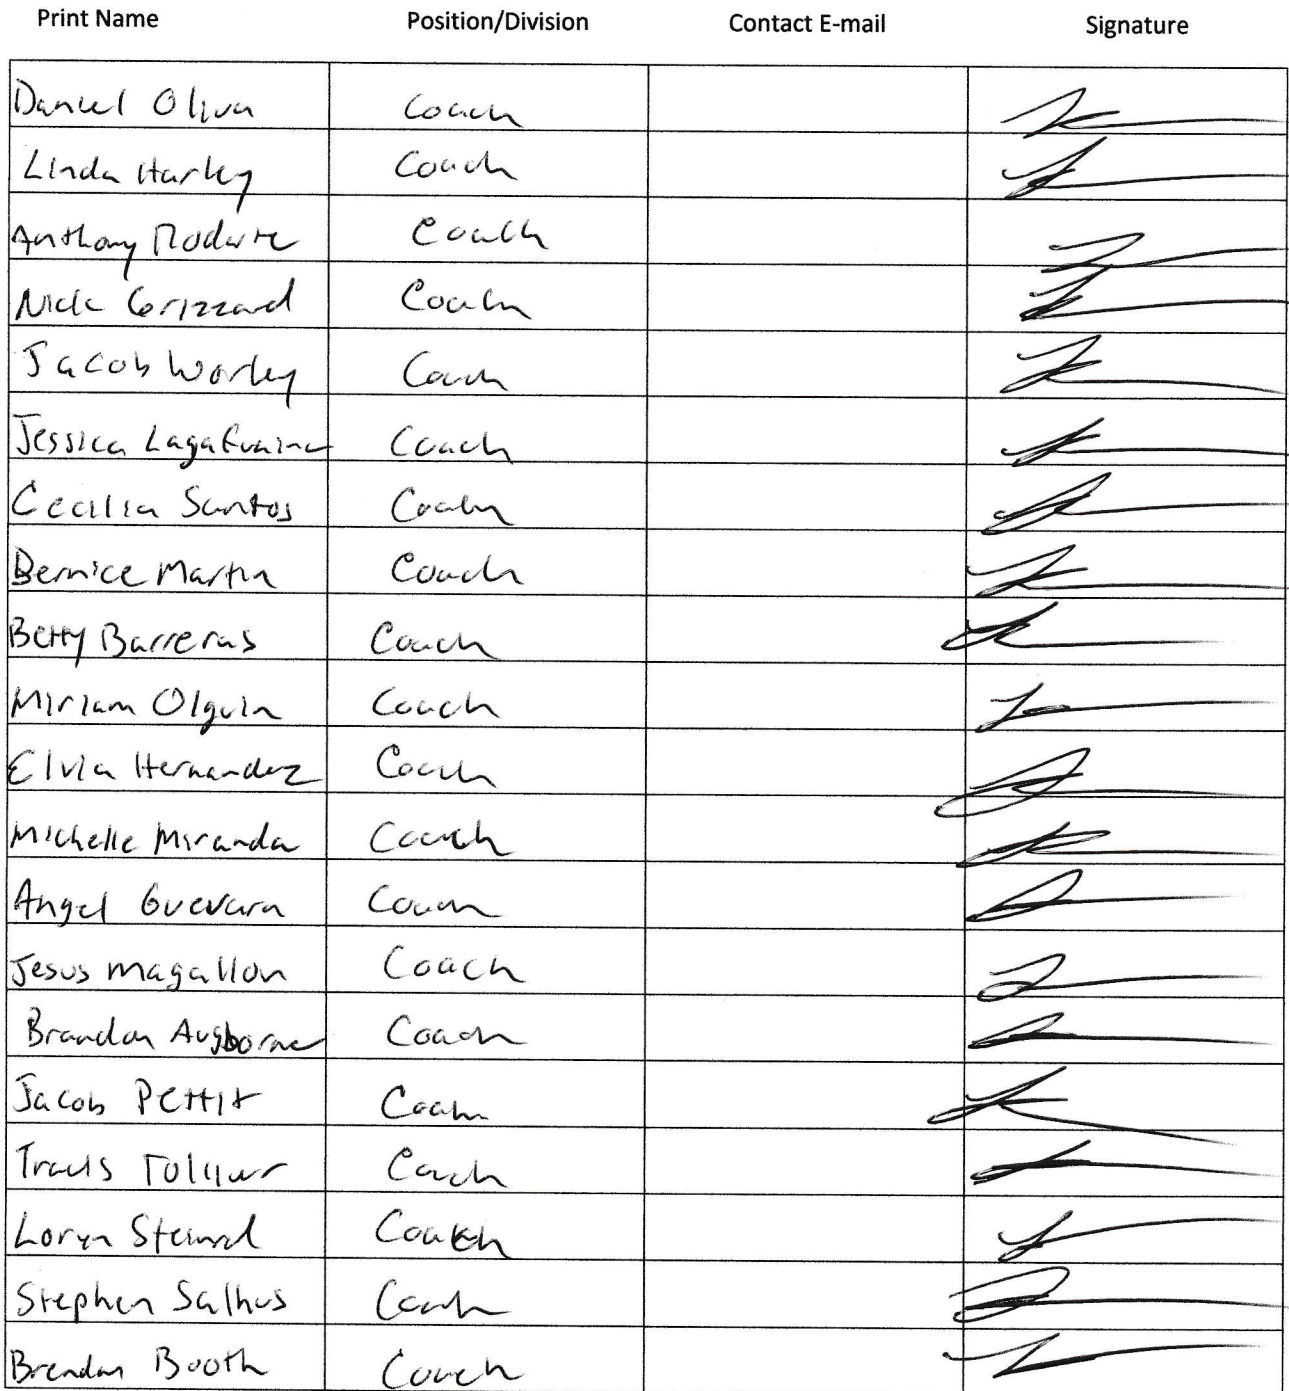 Print Name Position/Division Contact E-mail Signature
Daniel Oliva Coach
Linda Harley Coach
Anthony Rodarte Coach
Nick Grizzard Coach
Jacob Worley Coach
Jessica Coach
Cecilia Santos Coach
Bernice Martin Coach
Betty Barreras Coach
Miriam Olguin Coach
Elvia Hernandez Coach
Michelle Miranda Coach
Angel Guevara Coach
Jesus Magallon Coach
Brandon Augborne Coach
Jacob Pettit Coach
Travis Coach
Loryn Coach
Stephen Salhus Coach
Brendan Booth Coach